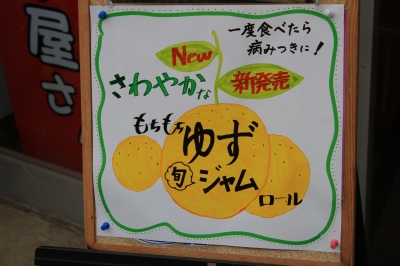 屋さ
一度食べたら
病みつきに!
New
新発売
さわやかな
もちもち
ゆず
旬ジャム
ロール